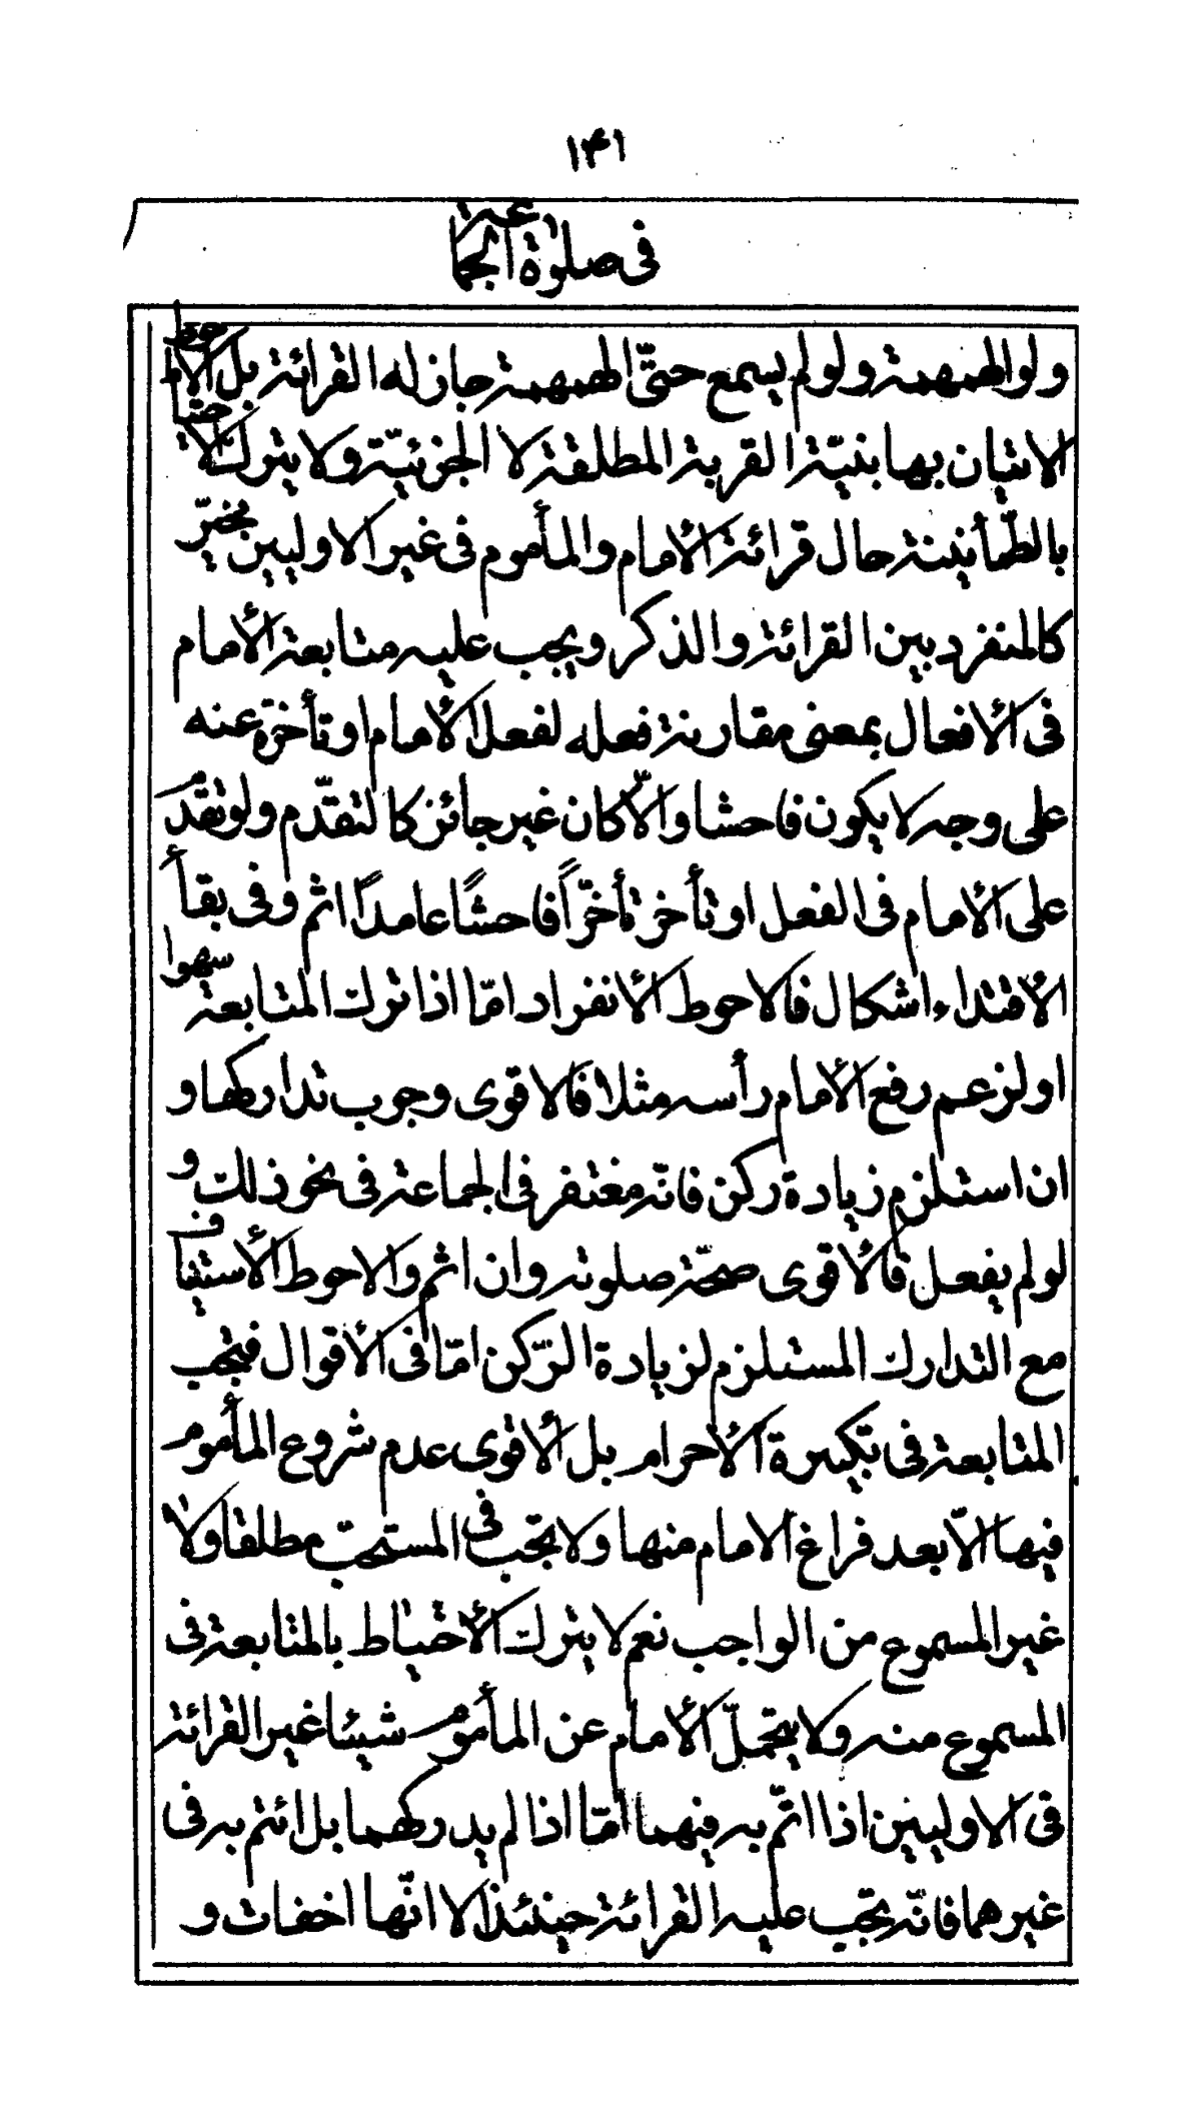 ١٤١
فى صلوة الجماعة
ولو الهمهمة ولو لم يسمع حتّى الهمهمة جاز له القرائة بل الاحوط
الاتيان بها بنيّة القربة المطلقة لا الجزئيّة ولا يترك الاحتياط
بالطّمأنينة حال قرائة الأمام والمأموم فى غير الاوليين يخيّر
كالمنفرد بين القرائة والذكر ويجب عليه متابعة الأمام
فى الأفعال بمعنى مقارنة فعله لفعل الأمام او تأخره عنه
على وجه لا يكون فاحشا والّا كان غير جائز كالتقدّم ولو تقدّم
على الأمام فى الفعل او تأخر تأخّراً فاحشًا عامدًا اثم وفى بقاء
الأقتداء اشكال فالاحوط الأنفراد امّا اذا ترك المتابعة سهوا
او لزعم رفع الأمام رأسه مثلا فالاقوى وجوب تداركها و
ان استلزم زيادة ركن فانّه مغتفر فى الجماعة فى نحو ذلك و
لو لم يفعل فالأقوى صحّة صلوته وان اثم والاحوط الأستيناف
مع التدارك المستلزم لزيادة الرّكن امّا فى الأقوال فيجب
المتابعة فى تكبيرة الأحرام بل الأقوى عدم شروع المأموم
فيها الّا بعد فراغ الامام منها ولا تجب فى المستحبّ مطلقا ولا
غير المسموع من الواجب نعم لا يترك الأحتياط بالمتابعة فى
المسموع منه ولا يتحمّل الأمام عن المأموم شيئا غير القرائة
فى الاوليين اذا ائتمّ به فيهما امّا اذا لم يدركهما بل ائتم به فى
غيرهما فانّه تجب عليه القرائة حينئذ الا انّها اخفات و